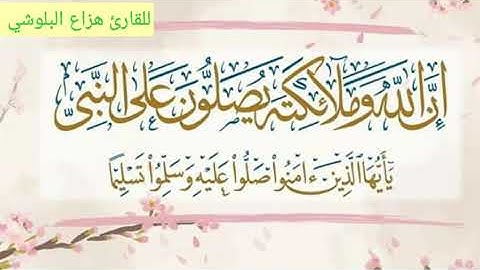 للقارئ هزاع البلوشي
إِنَّ اللَّهَ وَمَلَائِكَتَهُ يُصَلُّونَ عَلَى النَّبِيِّ
يَٰٓأَيُّهَا ٱلَّذِينَ ءَامَنُوا۟ صَلُّوا۟ عَلَيْهِ وَسَلِّمُوا۟ تَسْلِيمًا